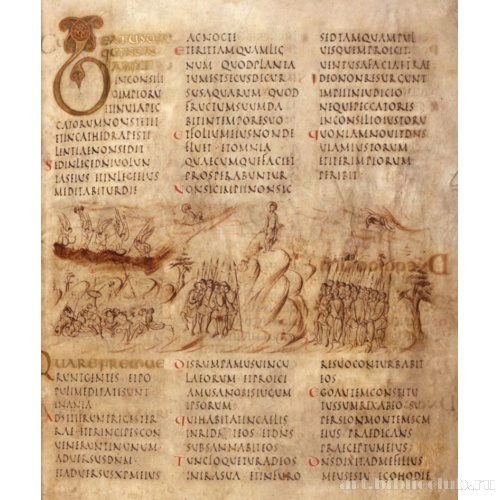 BEATUSUIR
QUINON
ABIIT
INCONSILI
OIMPIORU
ETINUIAPEC
CATORUMNONSTETIT
ETINCATHIDRAPESTI
LENTIAENONSEDIT
SEDINLEGEDNIUOLUN
TASEIUS ETINLEGEEIUS
MEDITABITURDIE
ACNOCTE
ETERITTAMQUAMLIG
NUM QUODPLANTA
TUMESTSECUSDECUR
SUSAQUARUM QUOD
FRUCTUMSUUMDA
BITINTEMPORESUO
ETFOLIUMEIUSNONDE
FLUET ETOMNIA
QUAECUMQUEFACIET
PROSPERABUNTUR
NONSICIMPIINONSIC
SEDTAMQUAMPUL
UISQUEMPROICIT
UENTUSAFACIAETERRAE
IDEONONRESURGUNT
IMPIIINIUDICIO
NEQUEPECCATORES
INCONSILIOIUSTORU
QUONIAMNOUITDNS
UIAMIUSTORUM
ETITERIMPIORUM
PERIBIT
QUAREFREMUE
RUNTGENTES ETPO
PULIMEDITATISUNT
INANIA
ADSTITERUNTREGESTER
RAE ETPRINCIPESCON
UENERUNTINUNUM
ADUERSUSDNM
ETADUERSUSXPMEIUS
DISRUMPAMUSUINCU
LAEORUM ETPROICI
AMUSANOBISIUGUM
IPSORUM
QUIHABITATINCAELIS
INRIDEBITEOS ETDNS
SUBSANNABITEOS
TUNCLOQUETURADEOS
INIRASUA ETINFURO
RESUOCONTURBABIT
EOS
EGOAUTEMCONSTITU
TUSSUMREXABEO SU
PERSIONMONTEMSCM
EIUS PRAEDICANS
PRAECEPTUMEIUS
DNSDIXITADMEFILIUS
MEUSESTU EGOHODIE